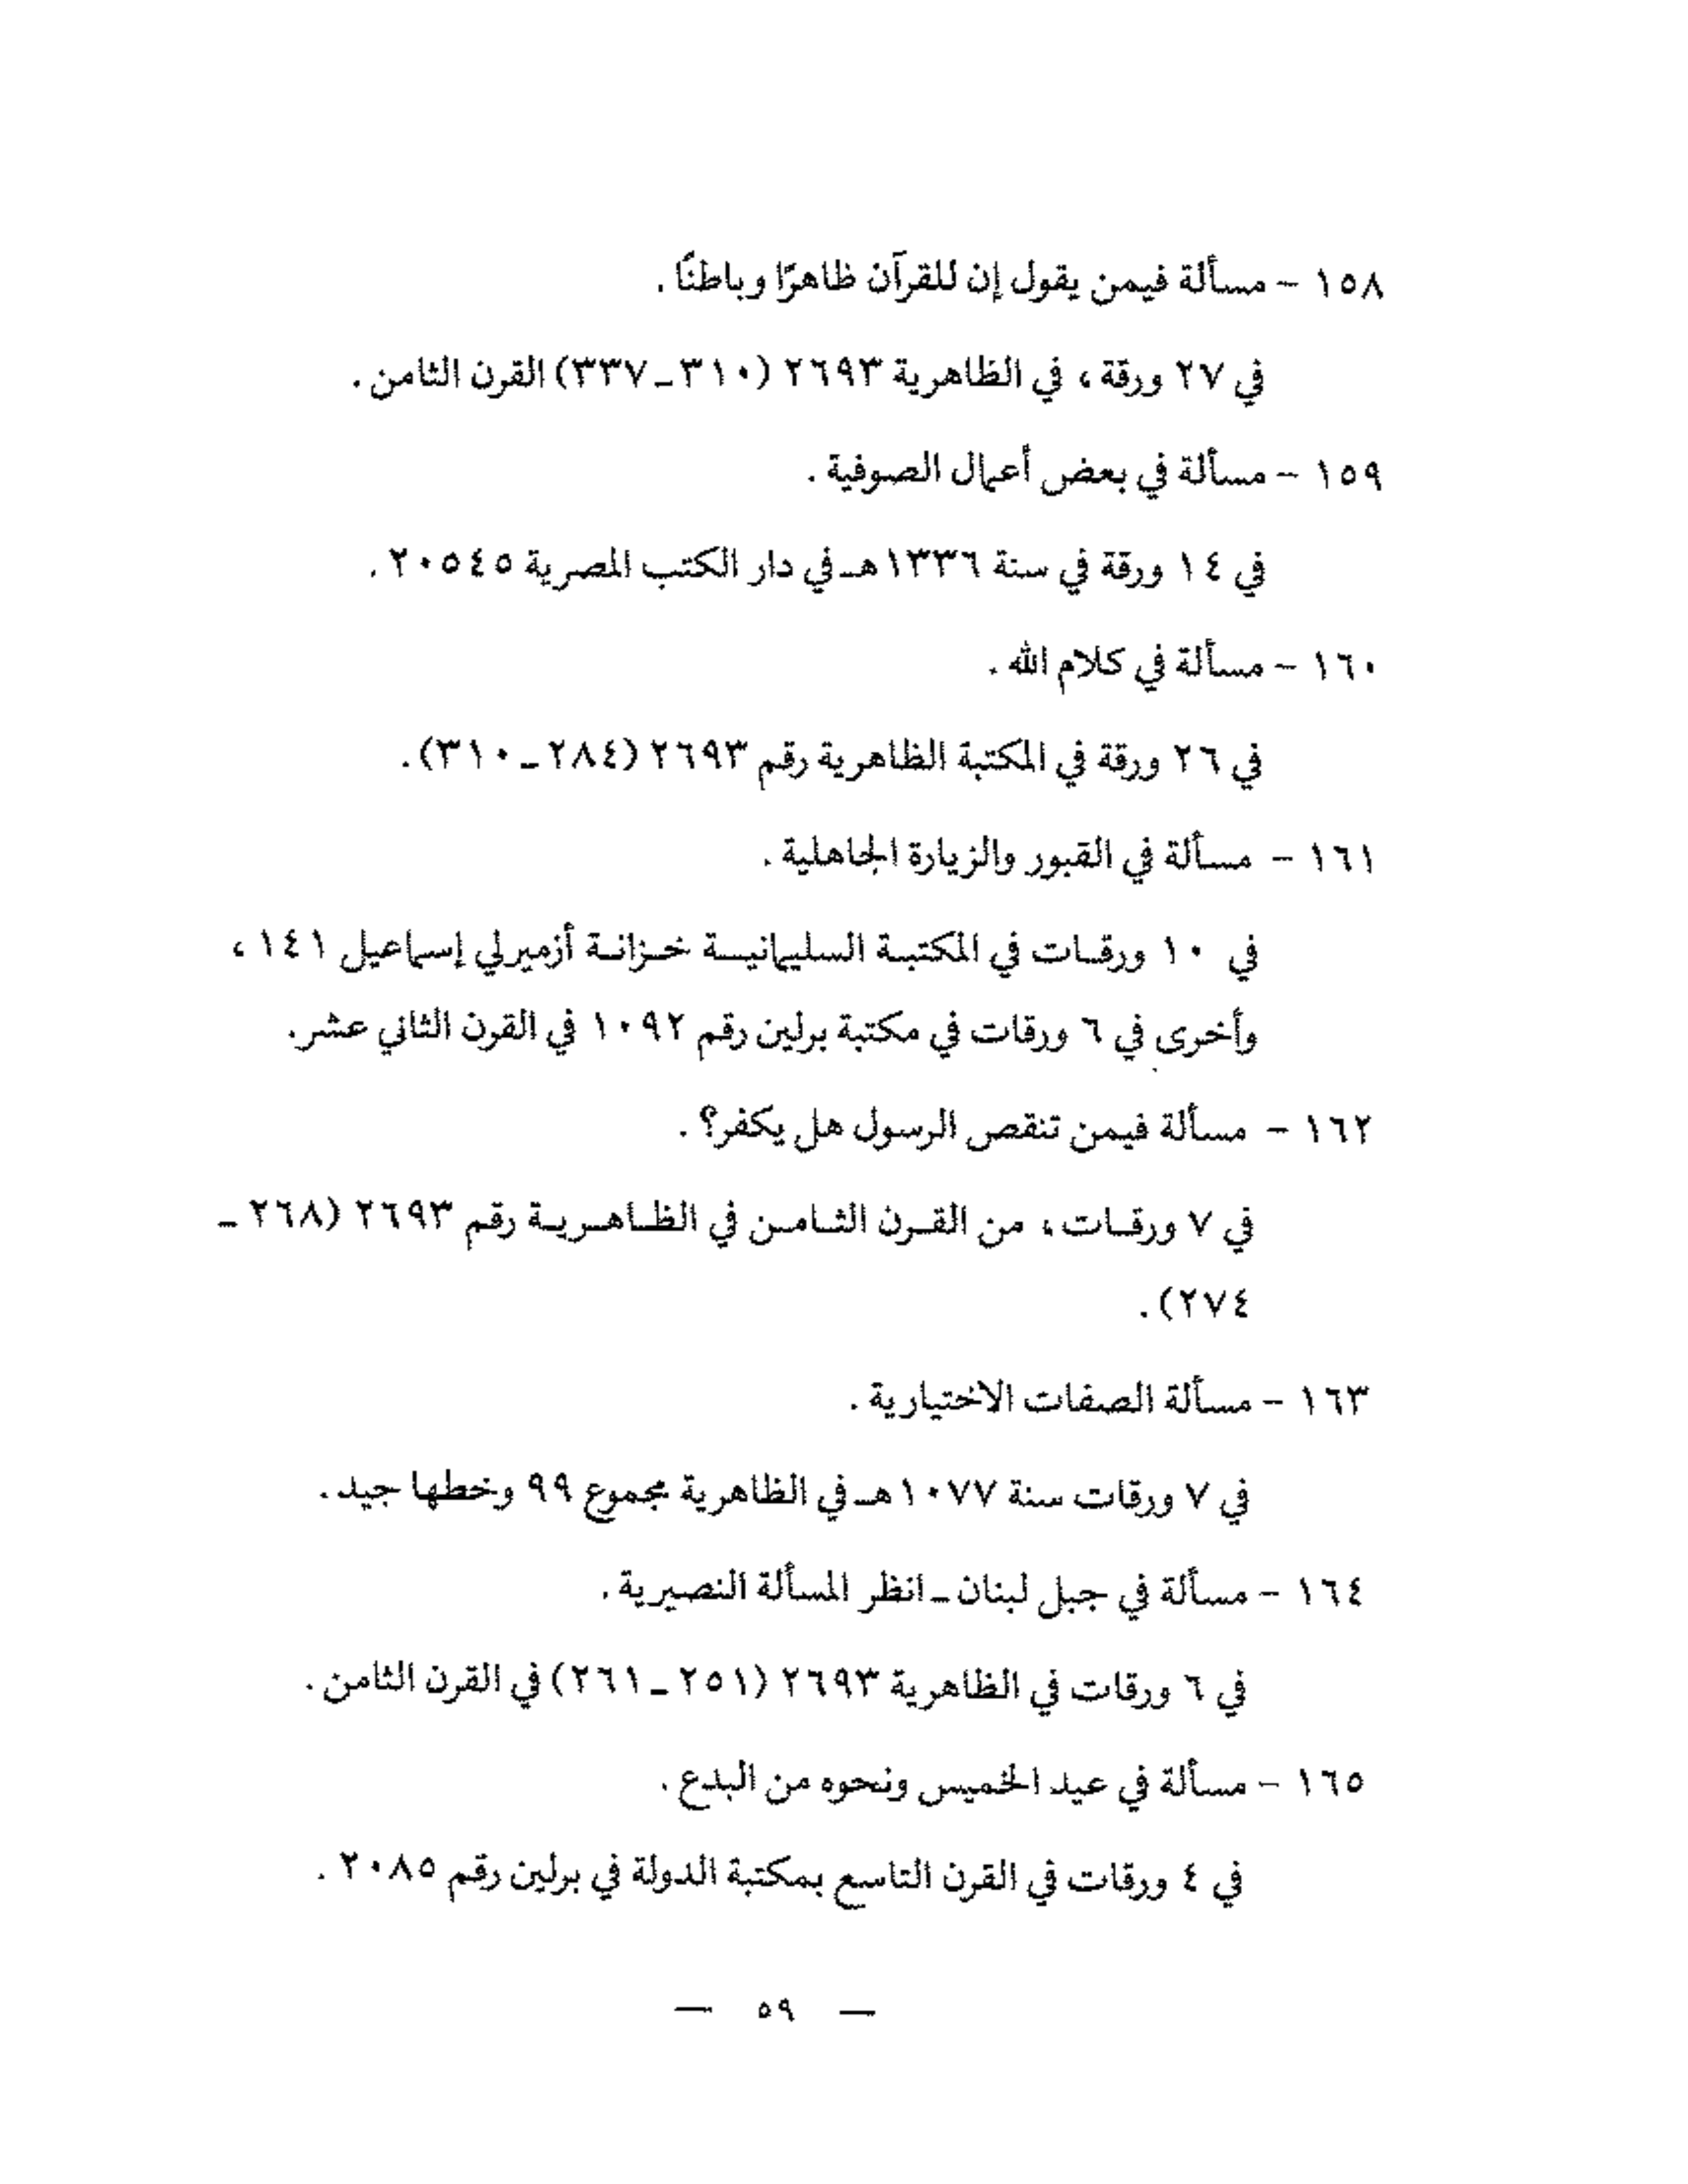 ١٥٨ - مسألة فيمن يقول إن للقرآن ظاهرًا وباطنًا .
في ٢٧ ورقة ، في الظاهرية ٢٦٩٣ (٣١٠ـ٣٣٧) القرن الثامن .
١٥٩ - مسألة في بعض أعمال الصوفية .
في ١٤ ورقة في سنة ١٣٣٦هـ في دار الكتب المصرية ٢٠٥٤٥ .
١٦٠ - مسألة في كلام الله .
في ٢٦ ورقة في المكتبة الظاهرية رقم ٢٦٩٣ (٢٨٤ـ٣١٠) .
١٦١ - مسألة في القبور والزيارة الجاهلية .
في ١٠ ورقات في المكتبة السليمانية خزانة أزميرلي إسماعيل ١٤١ ،
وأخرى في ٦ ورقات في مكتبة برلين رقم ١٠٩٢ في القرن الثاني عشر.
١٦٢ - مسألة فيمن تنقص الرسول هل يكفر؟ .
في ٧ ورقات ، من القرن الثامن في الظاهرية رقم ٢٦٩٣ (٢٦٨ ـ
٢٧٤) .
١٦٣ - مسألة الصفات الاختيارية .
في ٧ ورقات سنة ١٠٧٧هـ في الظاهرية مجموع ٩٩ وخطها جيد .
١٦٤ - مسألة في جبل لبنان ـ انظر المسألة النصيرية .
في ٦ ورقات في الظاهرية ٢٦٩٣ (٢٥١ـ٢٦١) في القرن الثامن .
١٦٥ - مسألة في عيد الخميس ونحوه من البدع .
في ٤ ورقات في القرن التاسع بمكتبة الدولة في برلين رقم ٢٠٨٥ .
— ٥٩ —